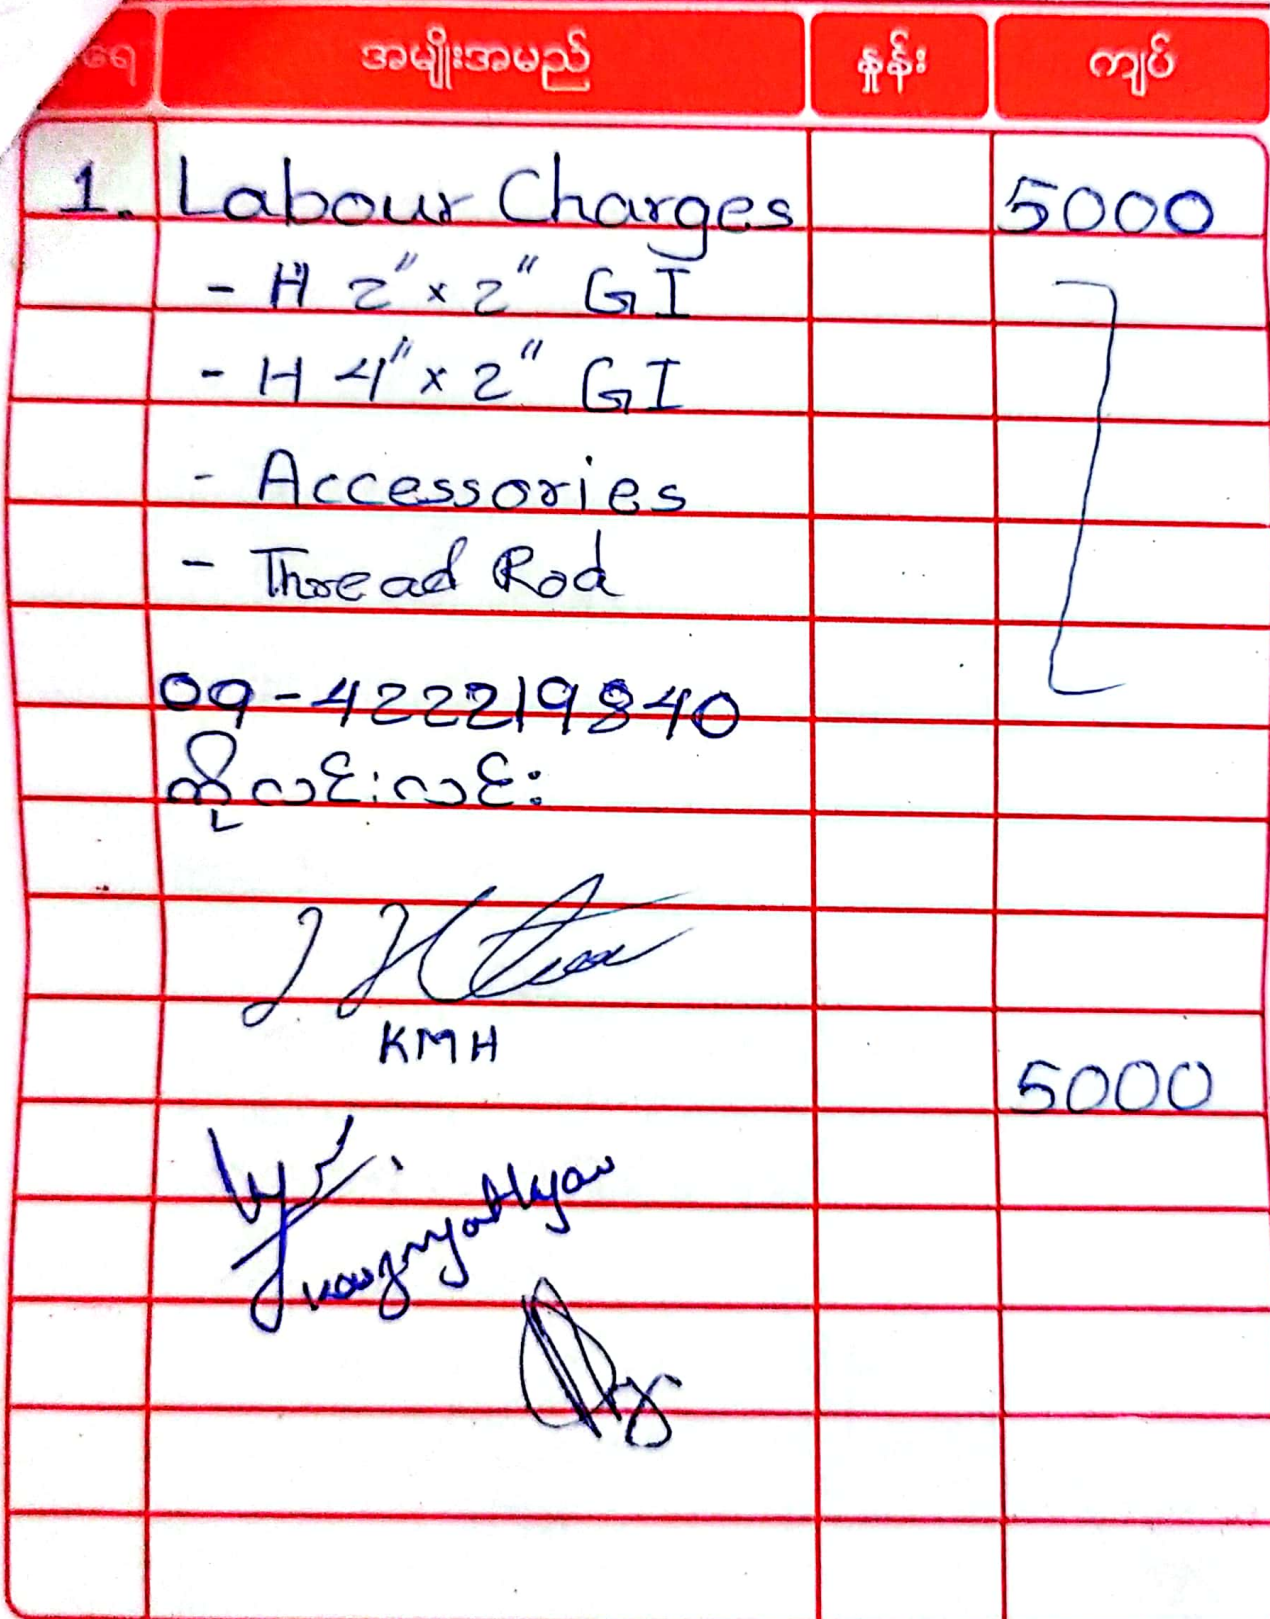 ရေ အမျိုးအမည် နှုန်း ကျပ်
1. Labour Charges 5000
- H 2" x 2" GI
- H 4" x 2" GI
- Accessories
- Thread Rod
09-422219840
ကိုလင်းလင်း
KMH
5000